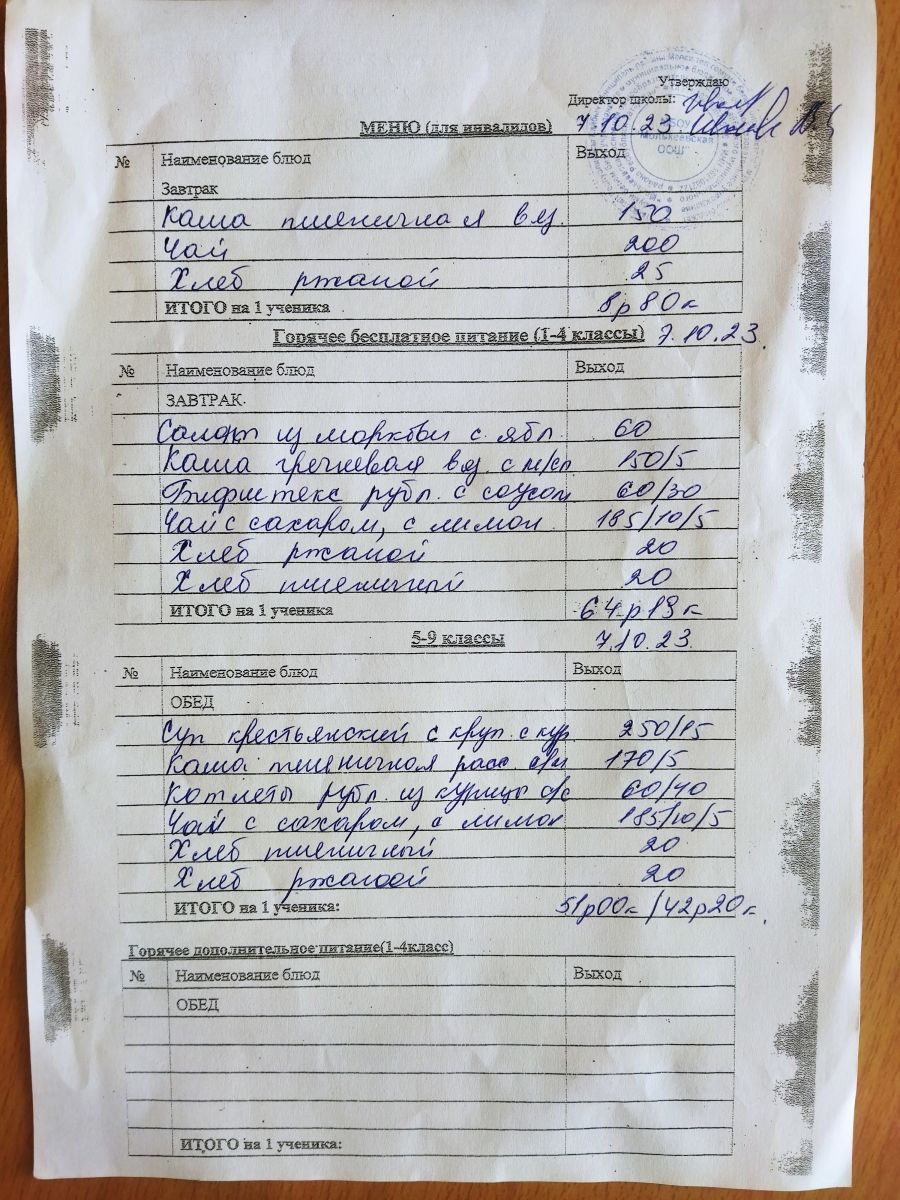 Утверждаю
Директор школы:
МЕНЮ (для инвалидов) 7.10.23
МБОУ
"Молькеевская
ООШ"
№ Наименование блюд Выход
Завтрак
Каша пшеничная вяз. 150
Чай 200
Хлеб ржаной 25
ИТОГО на 1 ученика 8р80к
Горячее бесплатное питание (1-4 классы) 7.10.23.
№ Наименование блюд Выход
ЗАВТРАК.
Салат из моркови с ябл. 60
Каша гречневая вяз с м/сл 150/5
Бифштекс рубл. с соусом 60/30
Чай с сахаром, с лимон 185/10/5
Хлеб ржаной 20
Хлеб пшеничный 20
ИТОГО на 1 ученика 64р19к
5-9 классы 7.10.23
№ Наименование блюд Выход
ОБЕД
Суп крестьянский с круп. с кур 250/15
Каша пшеничная расс 170/5
Котлеты рубл. из курицы с/с 60/40
Чай с сахаром, с лимон 185/10/5
Хлеб пшеничный 20
Хлеб ржаной 20
ИТОГО на 1 ученика: 51р00к/42р20к.
Горячее дополнительное питание(1-4класс)
№ Наименование блюд Выход
ОБЕД
ИТОГО на 1 ученика: